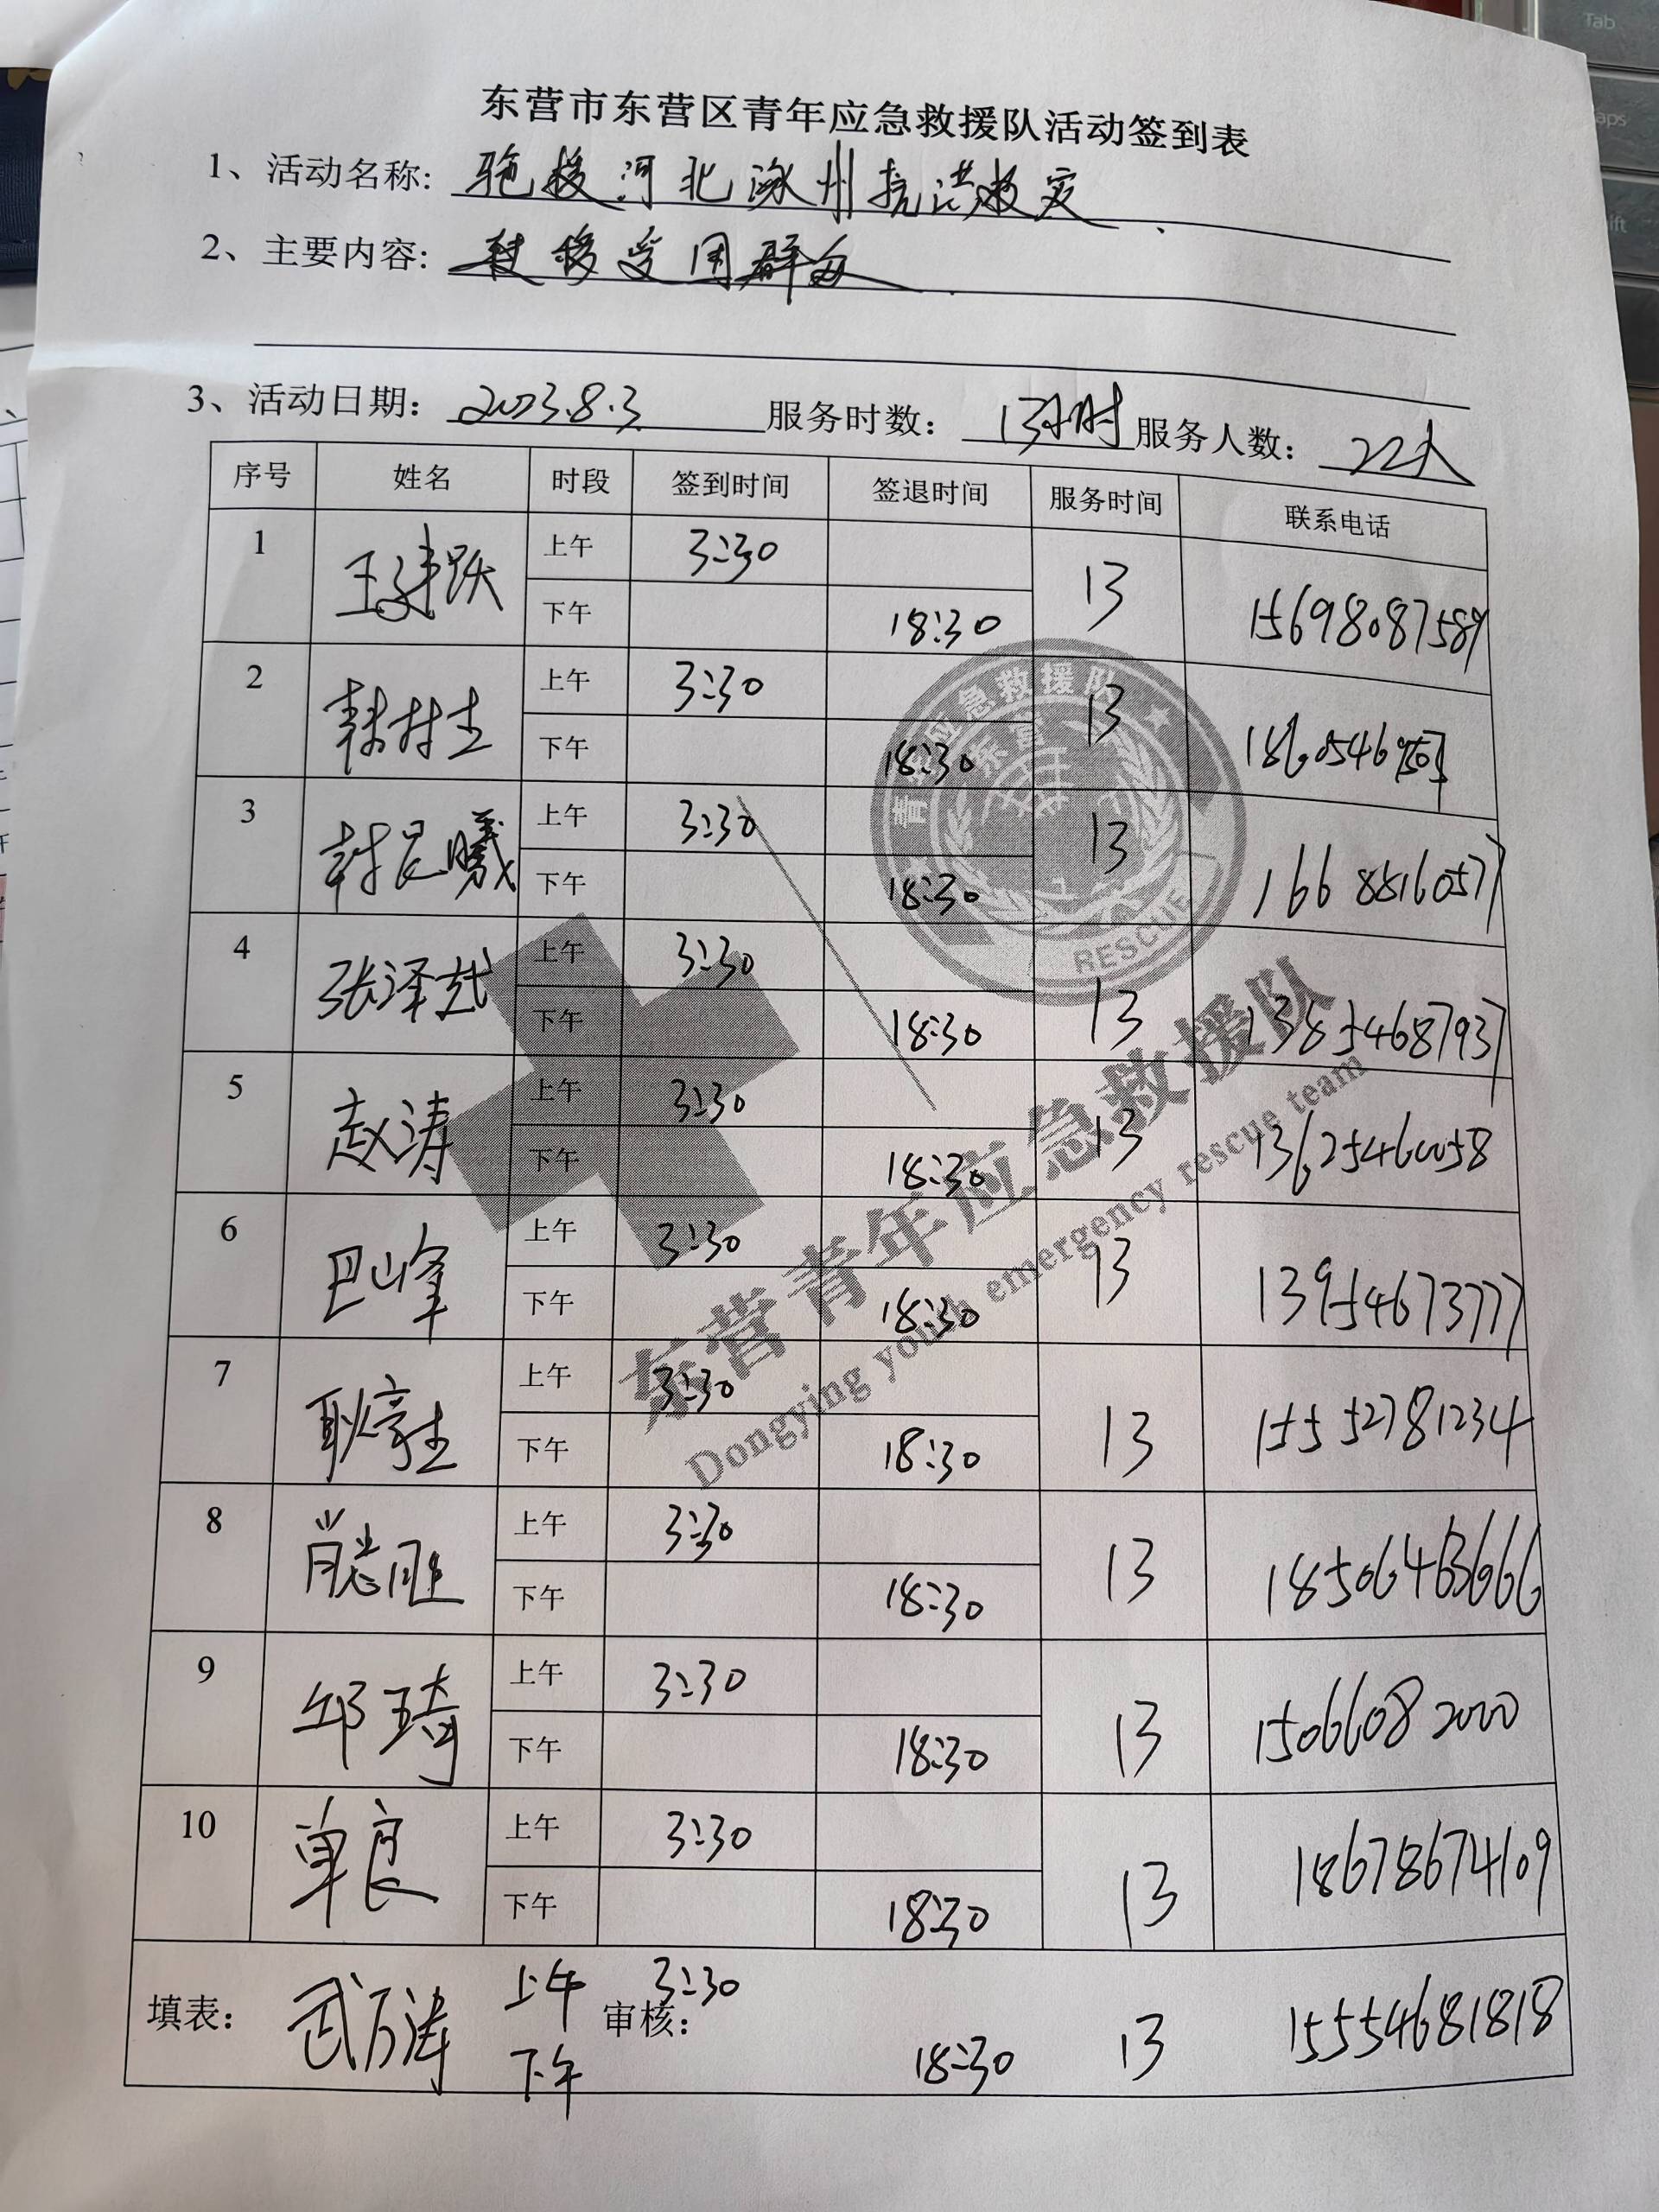 东营市东营区青年应急救援队活动签到表
1、活动名称: 驰援河北涿州抗洪救灾.
2、主要内容: 转移受困群众.
3、活动日期: 2023.8.3 服务时数: 13小时 服务人数: 22人
序号 姓名 时段 签到时间 签退时间 服务时间 联系电话
1 王建跃 上午 3:30 13 15698087589
下午 18:30
2 上午 3:30 13
下午 18:30
3 韩晨曦 上午 3:30 13 16688516057
下午 18:30
4 张泽越 上午 3:30 13 13854687937
下午 18:30
5 赵涛 上午 3:30 13 13625460058
下午 18:30
6 巴山峰 上午 3:30 13 13954673777
下午 18:30
7 上午 3:30 13 15552781234
下午 18:30
8 上午 3:30 13 18506463666
下午 18:30
9 邱琦 上午 3:30 13 15066082000
下午 18:30
10 单良 上午 3:30 13 18678674109
下午 18:30
填表: 武万涛 上午 3:30 审核: 13 15554681818
下午 18:30
青年应急救援队
东营
RESCUE
东营青年应急救援队
Dongying youth emergency rescue team
Tab